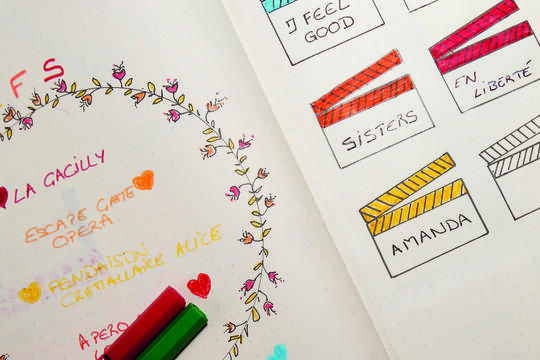 FS
LA GACILLY
ESCAPE GAME
OPERA
PENDAISON
CREMAILLAIRE ALICE
APERO
I FEEL
GOOD
EN
LIBERTÉ
SISTERS
AMANDA